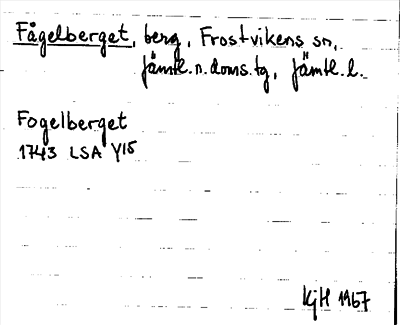 Fågelberget, berg, Frostvikens sn,
Jämtl. n. doms. tg, Jämtl. l.
Fogelberget
1743 LSA Y15
KjH 1967